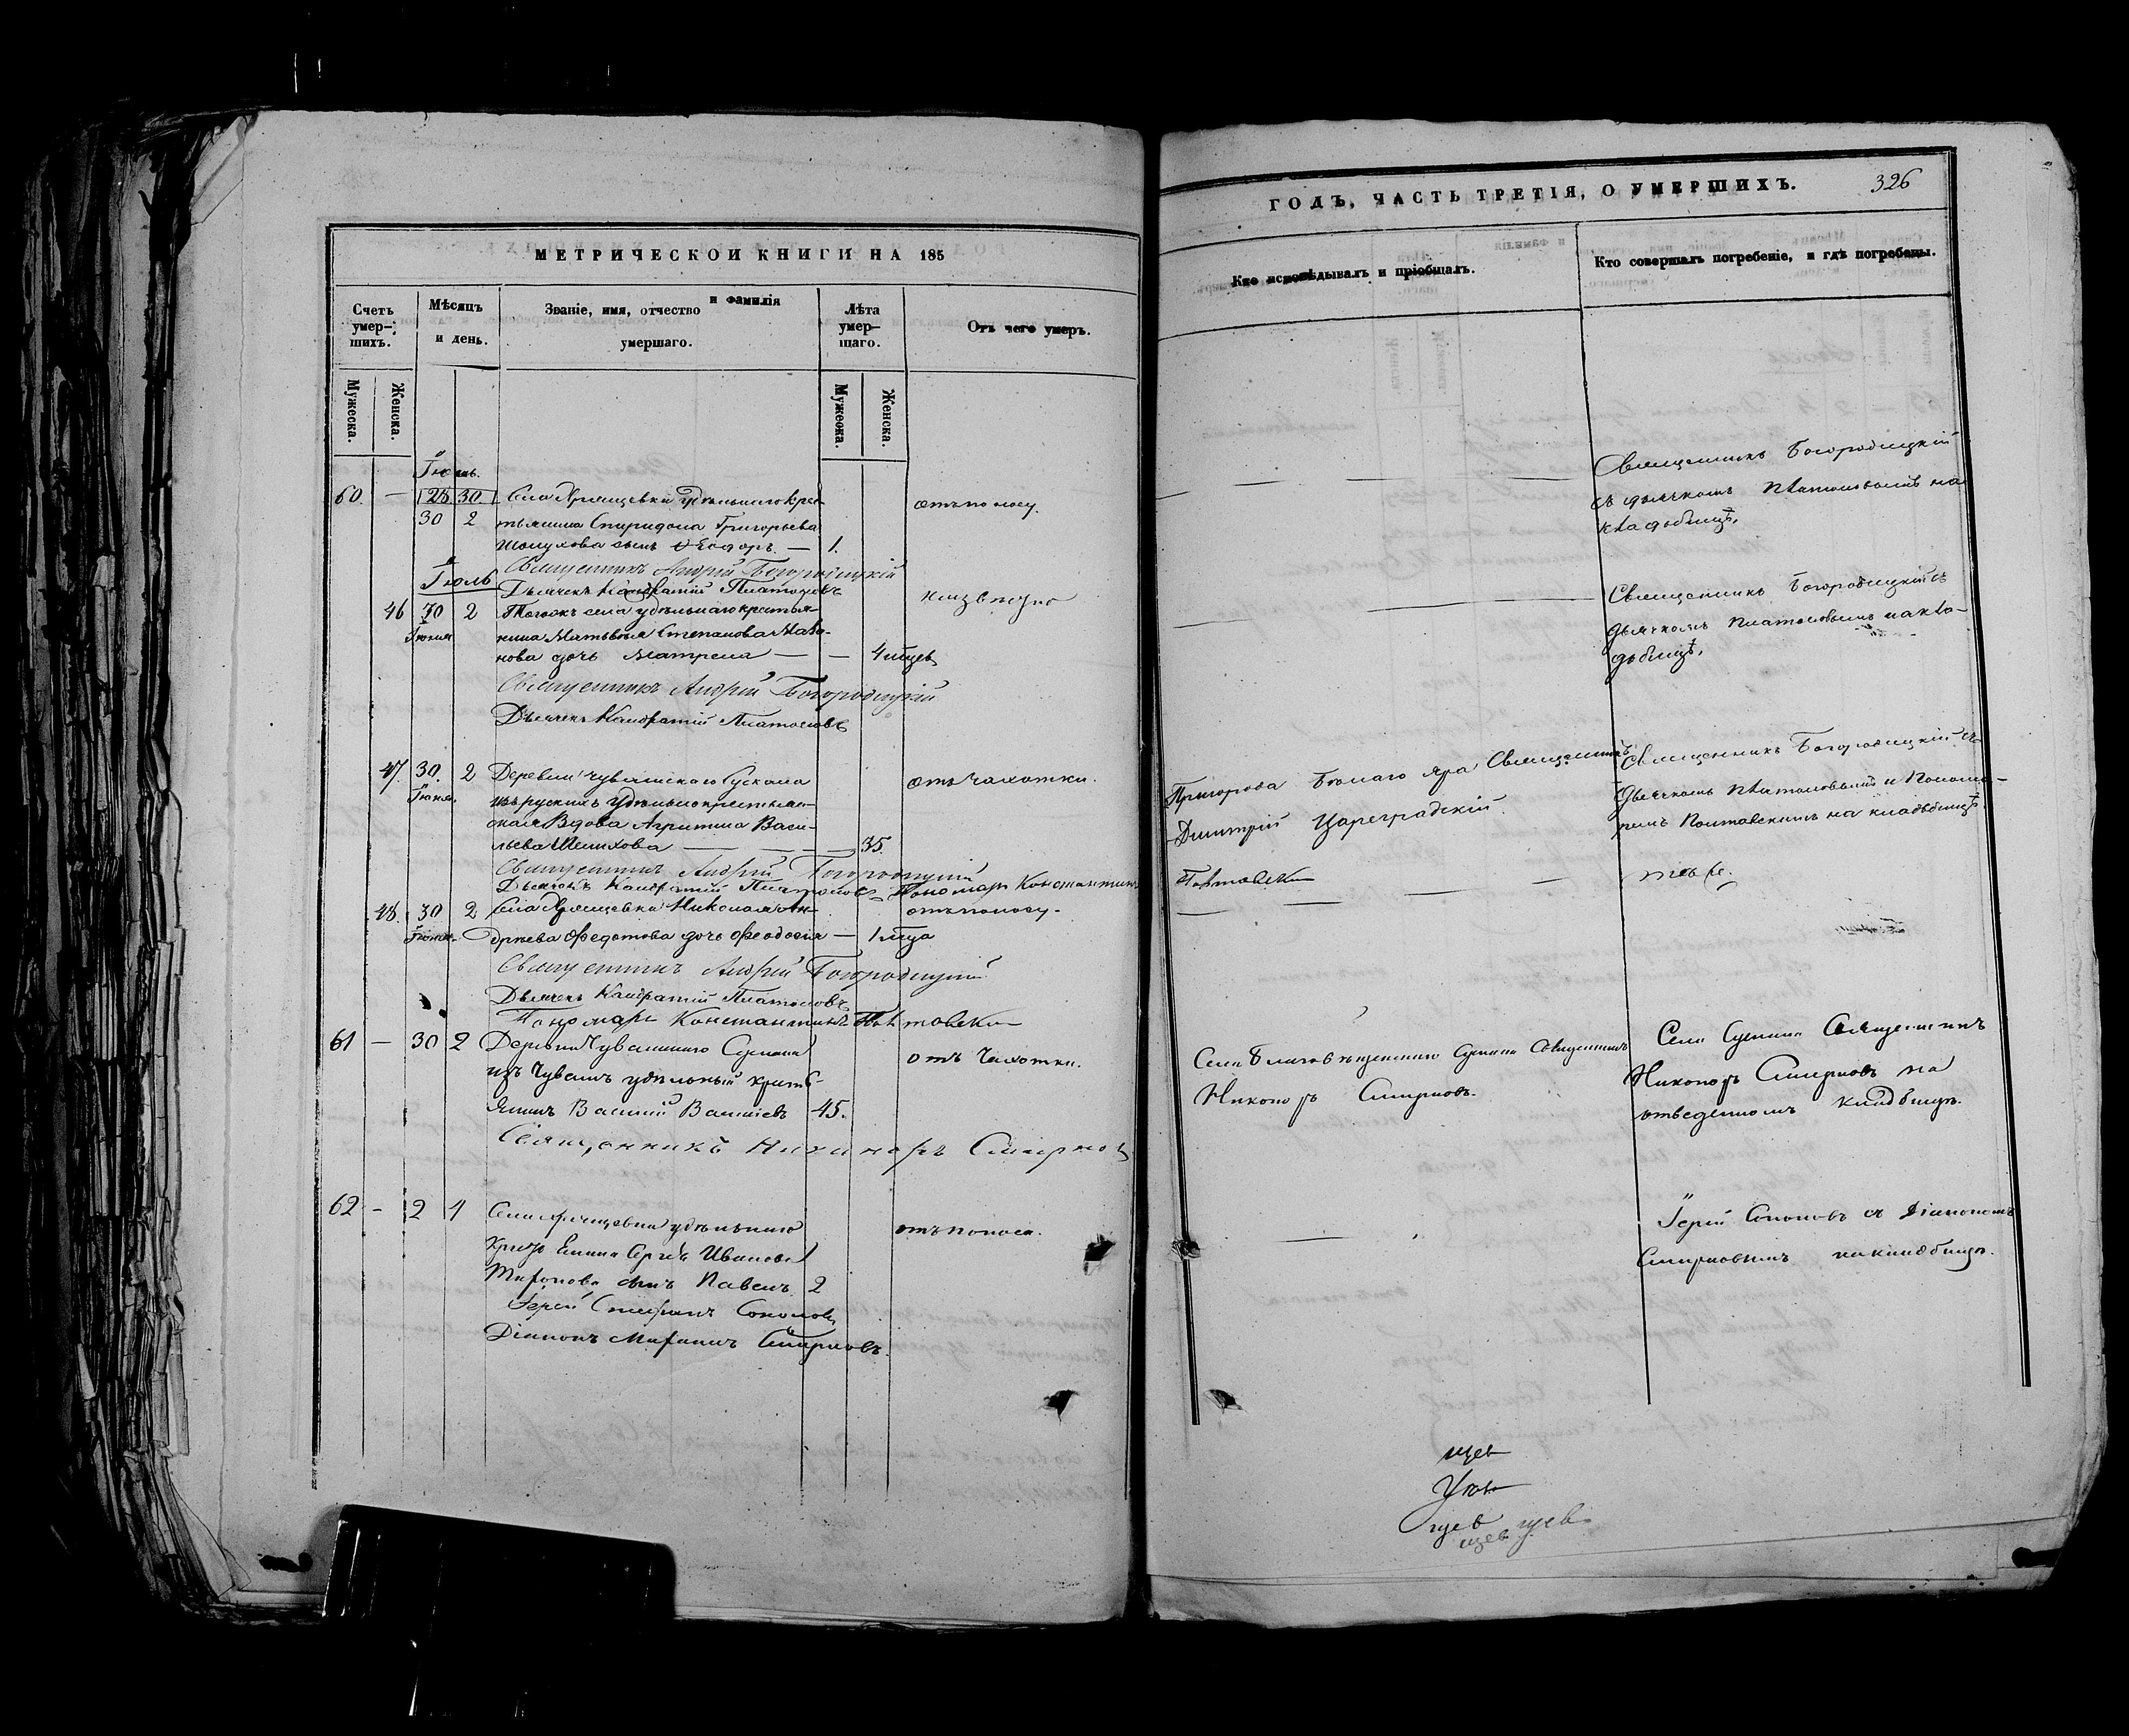 МЕТРИЧЕСКОЙ КНИГИ НА 185
Счетъ умер-шихъ.
Мѣсяцъ и день.
Званіе, имя, отчество и фамилія умершаго.
Лѣта умер-шаго.
Отъ чего умеръ.
Мужеска.
Женска.
Мужеска.
Женска.
Іюнь.
60. — 28 30. Села удѣльнаго крес- отъ поносу.
30 2 тьянина Спиридона Григорьева
сынъ Ѳеодоръ. — 1.
Священникъ Андрей Богородицкій
Іюль
Дьячекъ Кондратій Платоновъ
46 30 2 Тогожъ села удѣльнаго крестья-
Іюня
нина Матвѣя Степанова
нова дочь Матрена — — 4 мцев
Священникъ Андрей Богородицкій
Дьячекъ Кондратій Платоновъ
47. 30. 2 Деревни Чувашскаго Сускана отъ чахотки.
Іюня.
изъ рускихъ удѣльно крестьян-
ская Вдова Агрипина Васи-
льева Шелихова — — — 35.
Священникъ Андрей Богородицкій
Дьячекъ Кондратій Платоновъ Пономарь Константинъ
48. 30 2 Села Николая Ан- отъ поносу.
Іюня.
дреева Федотова дочь Феодосія — 1 мца
Священникъ Андрей Богородицкій
Дьячекъ Кондратій Платоновъ
Пономарь Константинъ
61 — 30 2 Деревни Чувашскаго Сускана отъ Чахотки.
изъ Чувашъ удѣльный крест-
янинъ Василій 45.
Священникъ Никаноръ Смирнов
62 — 2 4 Села удѣльнаго отъ поноса.
Сергѣя Иванова
сынъ Павелъ 2
Іерей Стефанъ Соколовъ
Діаконъ Смирновъ.
ГОДЪ, ЧАСТЬ ТРЕТІЯ, О УМЕРШИХЪ.
326
Кто исповѣдывалъ и пріобщалъ.
Кто совершалъ погребеніе, и гдѣ погребены.
Священникъ Богородицкій
съ дьячкомъ Платоновымъ на
кладбищѣ.
Священникъ Богородицкій съ
дьячкомъ Платоновымъ на кла-
дбищѣ.
Пригорода Бѣлаго Яра Священникъ
Димитрій Цареградскій.
Священникъ Богородицкій съ
Дьячкомъ Платоновымъ и Понома-
ремъ на кладбищѣ
тѣ же.
Села Благовѣщенскаго Сускана Священникъ
Никаноръ Смирновъ.
Села Сускана Священникъ
Никаноръ Смирновъ на
отведенномъ кладбищѣ.
Іерей Соколовъ съ Діакономъ
Смирновымъ на кладбищѣ.
щев
щев